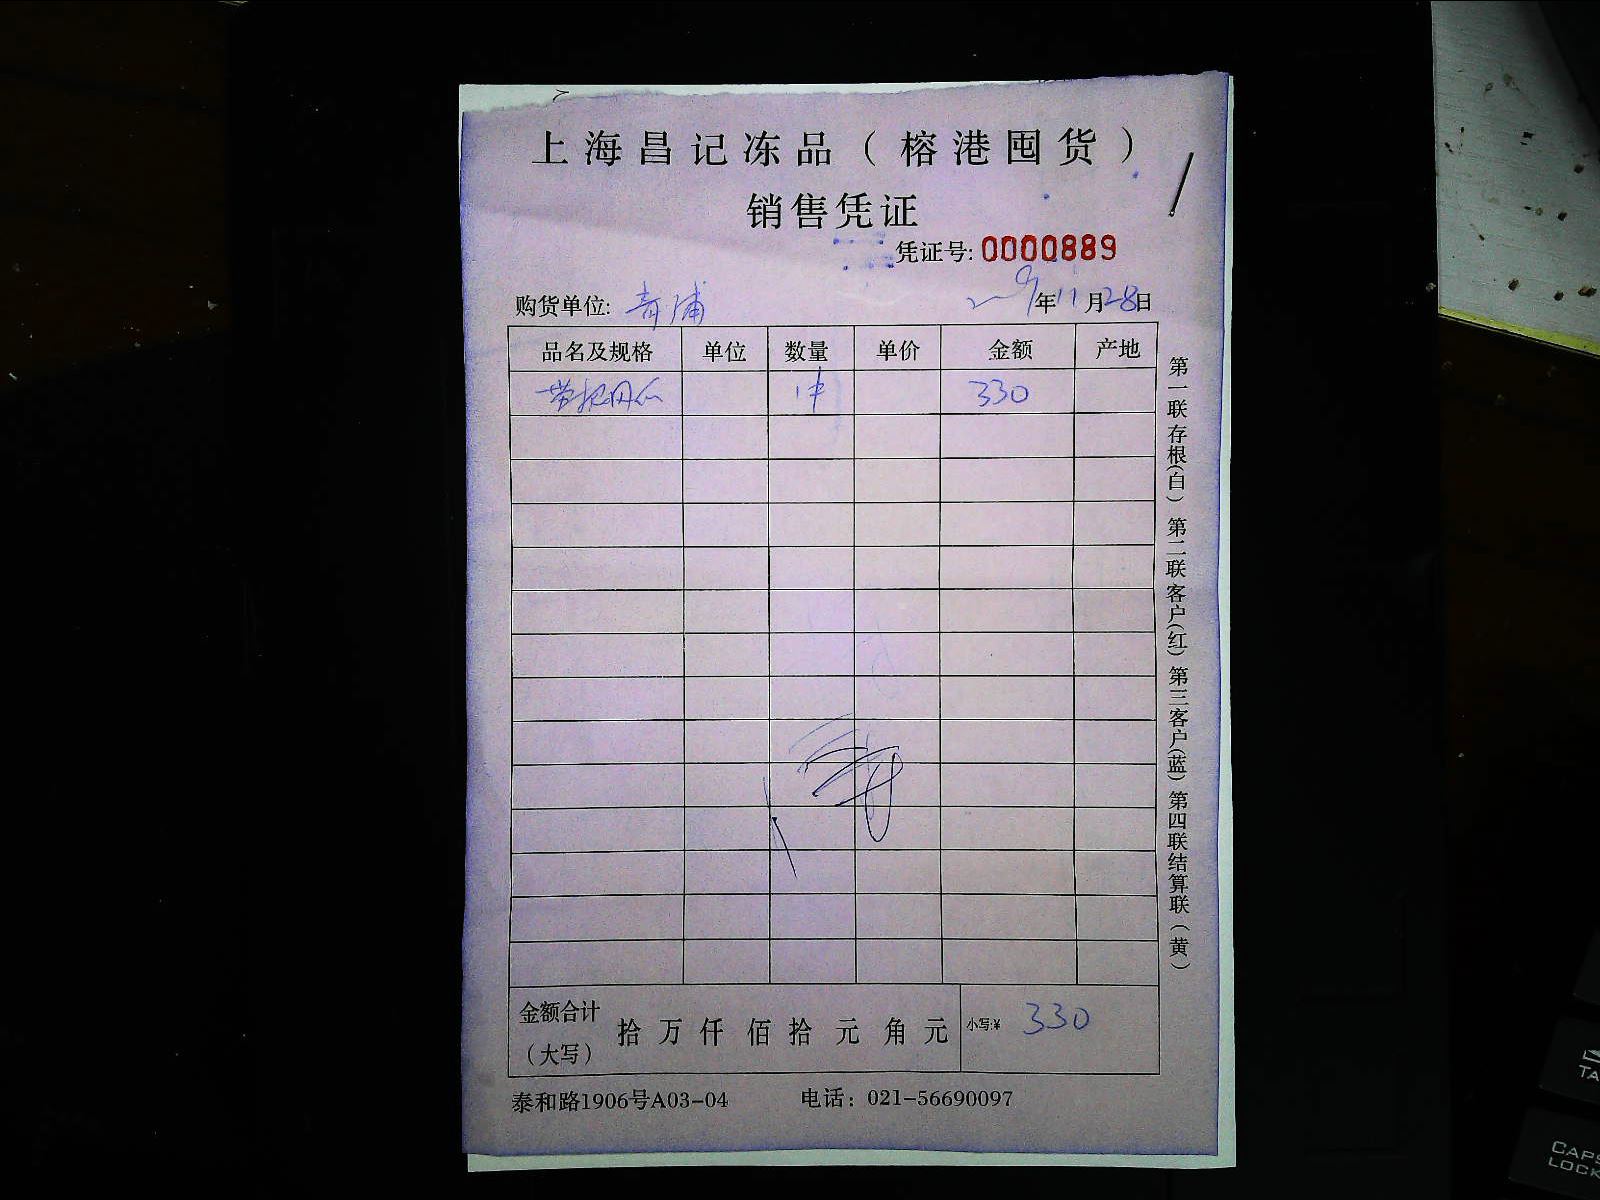 上海昌记冻品（榕港囤货）
销售凭证
凭证号:0000889
购货单位: 青浦 2019年11月28日
品名及规格 单位 数量 单价 金额 产地
1件 330
金额合计（大写） 拾万仟佰拾元角元 小写:¥ 330
泰和路1906号A03-04 电话：021-56690097
第一联存根(白) 第二联客户(红) 第三客户(蓝) 第四联结算联(黄)
CAPS
LOCK